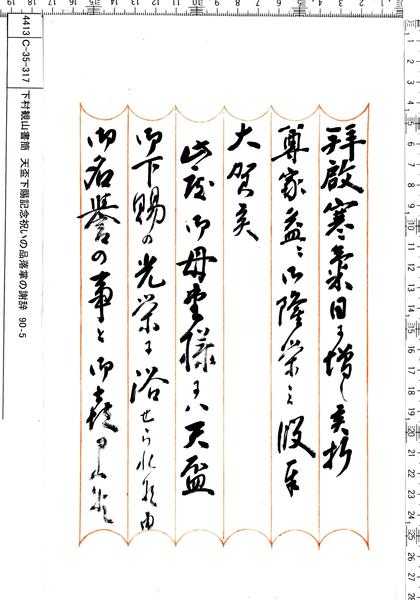 拝啓寒気日に増し候折
尊家益々御隆栄之段奉
大賀候
此度御母堂様には天盃
御下賜の光栄に浴せられ候由
御名誉の事と御喜申上候
4413 C-35-317 下村観山書簡 天盃下賜記念祝いの品落掌の謝辞 90-5